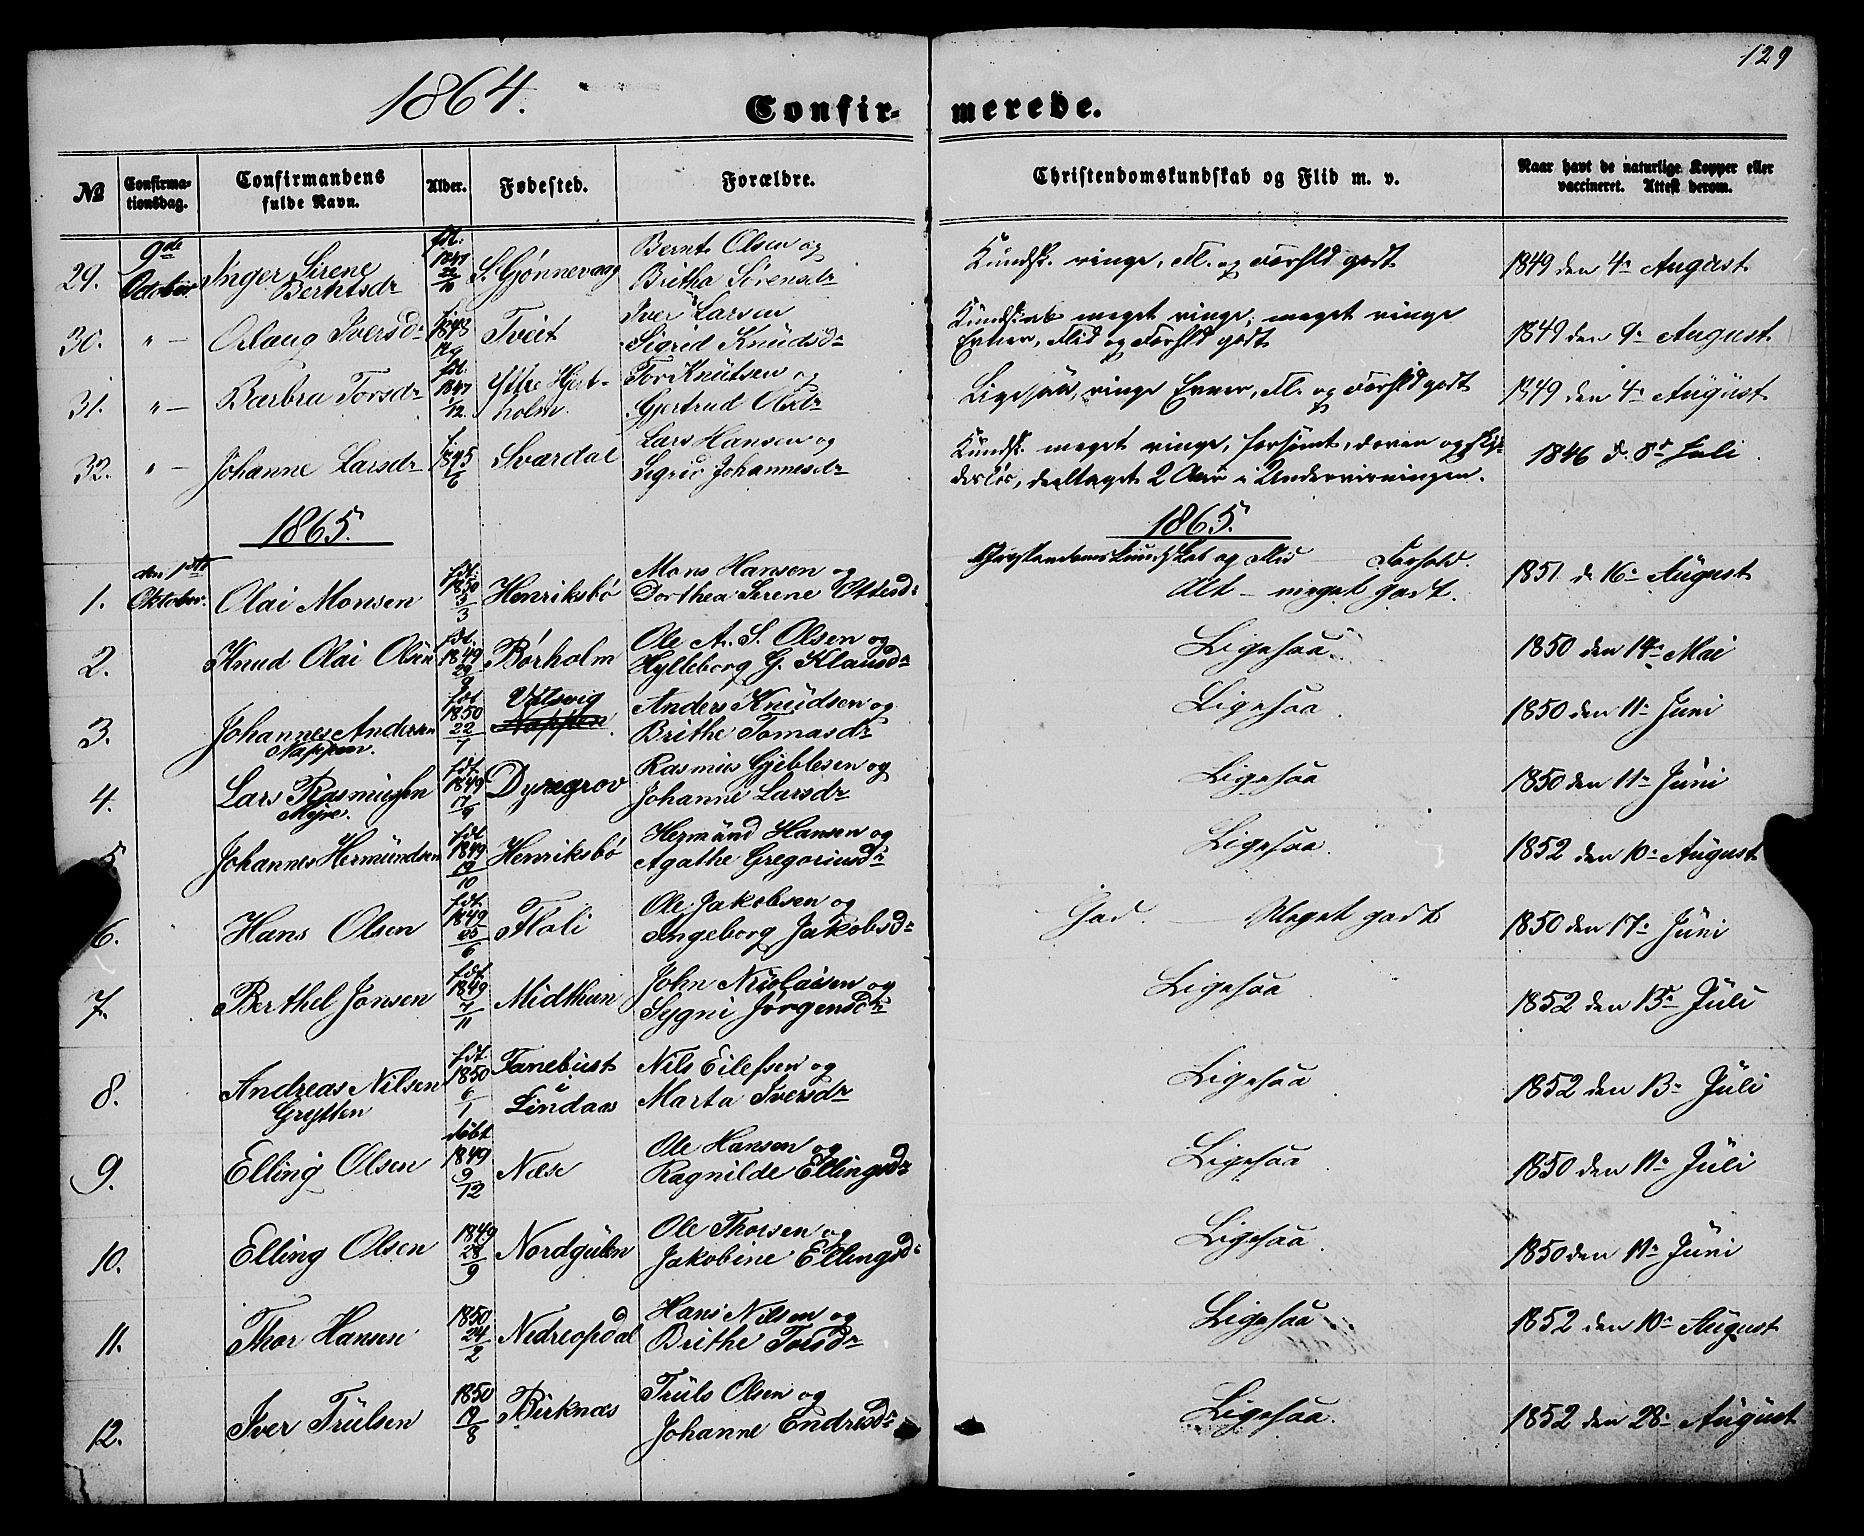 129
1864.
Confir- merede.
№ Confirma-tionsdag. Confirmandens fulde Navn. Alder. Fødested. Forældre. Christendomskundskab og Flid m. v. Naar havt de naturlige Kopper eller vaccineret. Attest derom.
29. 9de October Inger Sirene Berntsdr fdt. 1849 S. Gjønnevaag Bernt Olsen og Britha Sørensdr Kundsk. ringe, Fl. og Forhld godt 1849 den 4de August
30. " — Oelaug Iversdr Tveit Iver Larsen Sigrid Knudsdr Kundskab meget ringe, meget ringe Evner, Flid og Forhld godt 1849 den 9de August
31. " — Barbra Torsdr fdt. Ytre Hjort-holm. Tor Knutsen og Gjertrud Olsdr Ligesaa, ringe Evner, Fl. og Forhld godt 1849 den 4de August
32. " — Johanne Larsdr Svardal Lars Hansen og Sigrid Johannesdr Kundsk. meget ringe, forsømt, doven og skjø-desløs, deeltaget 2 Aar i Undervisningen. 1846 d. 8de Juli
1865. 1865.
Christendomskundskab og Flid — Forhold.
1. den 1ste Oktober. Olai Monsen fdt. 1850 5/3 Henriksbø Mons Hansen og Dorthea Serene Ottesdr Alt - meget godt. 1851 d. 16de August
2. Knud Olai Olsen fdt. 1849 29/9 Børholm Ole A. S. Olsen og Hylleborg G. Klausdr Ligesaa. 1850 den 14de Mai
3. Johannes Andersen Nappen. fdt 1850 22/1 Vilsvig Nappen Anders Knudsen og Brithe Tomasdr Ligesaa 1850 den 11te Juni
4. Lars Rasmussen Myre. fdt. 1849 17/9 Dyregrov Rasmus Gjeblesen og Johanne Larsdr Ligesaa 1850 den 11te Juni
5 Johannes Hermundsen fdt 1849 19/10 Henriksbø Hermund Hansen og Agathe Gregoriusdr Ligesaa. 1852 den 10de August
6. Hans Olsen fdt. 1849 Floli Ole Jakobsen og Ingeborg Jakobsdr God. — Meget godt 1850 den 17de Juni
7. Berthel Jonsen fdt 1849 7/11 Midthun John Nicolaisen og Sygni Jørgensdr Ligesaa 1852 den 13de Juli
8. Andreas Nilsen Grytten fdt. 1850 6/1 Fanebust i Lindaas Nils Eilefsen og Marta Iversdr Ligesaa 1852 den 13de Juli
9. Elling Olsen døbt 1849 9/12 Næse Ole Hansen og Ragnilde Ellingsdr Ligesaa 1850 den 11te Juli
10. Elling Olsen 1849 28/9 Nordgulen Ole Thorsen og Jakobine Ellingsdr Ligesaa. 1850 den 11te Juni
11. Thor Hansen 1850 24/2 Nedreopdal Hans Nilsen og Brithe Torsdr Ligesaa 1852 den 10de August
12. Iver Trulsen 1850 19/8 Birknæs Truls Olsen og Johanne Endresdr Ligesaa. 1852 den 28de August